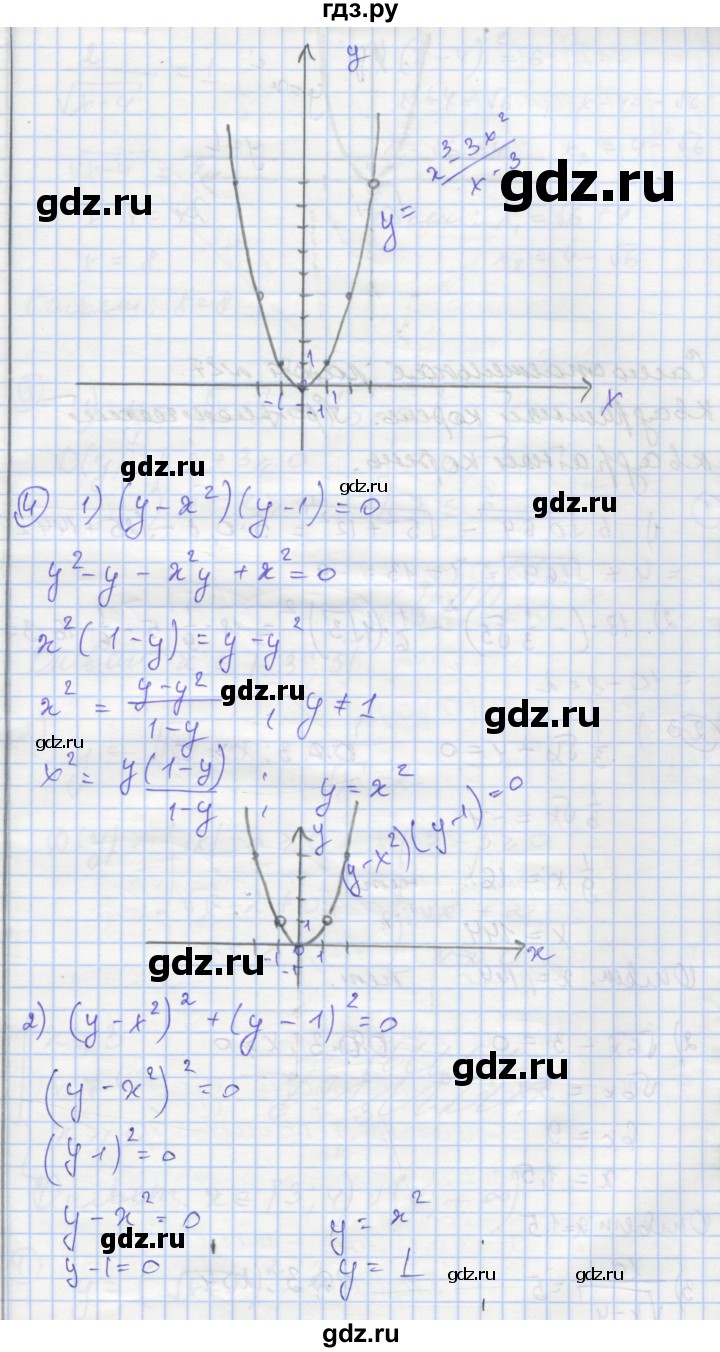 гдз.ру
y
y = x³ - 3x² / x - 3
gdz.ru
gdz.ru
1
-1 1
-1
x
gdz.ru
gdz.ru
gdz.ru
④ 1) (y - x²)(y - 1) = 0
y² - y - x²y + x² = 0
x²(1 - y) = y - y²
gdz.ru
x² = y - y² / 1 - y ; y ≠ 1
gdz.ru
gdz.ru
x² = y(1 - y) / 1 - y ; y = x²
y
(y - x²)(y - 1) = 0
1
-1 0 1
-1
x
gdz.ru
gdz.ru
2) (y - x²)² + (y - 1)² = 0
gdz.ru
(y - x²)² = 0
(y - 1)² = 0
y - x² = 0 y = x²
gdz.ru
y - 1 = 0 y = 1
gdz.ru
gdz.ru
gdz.ru